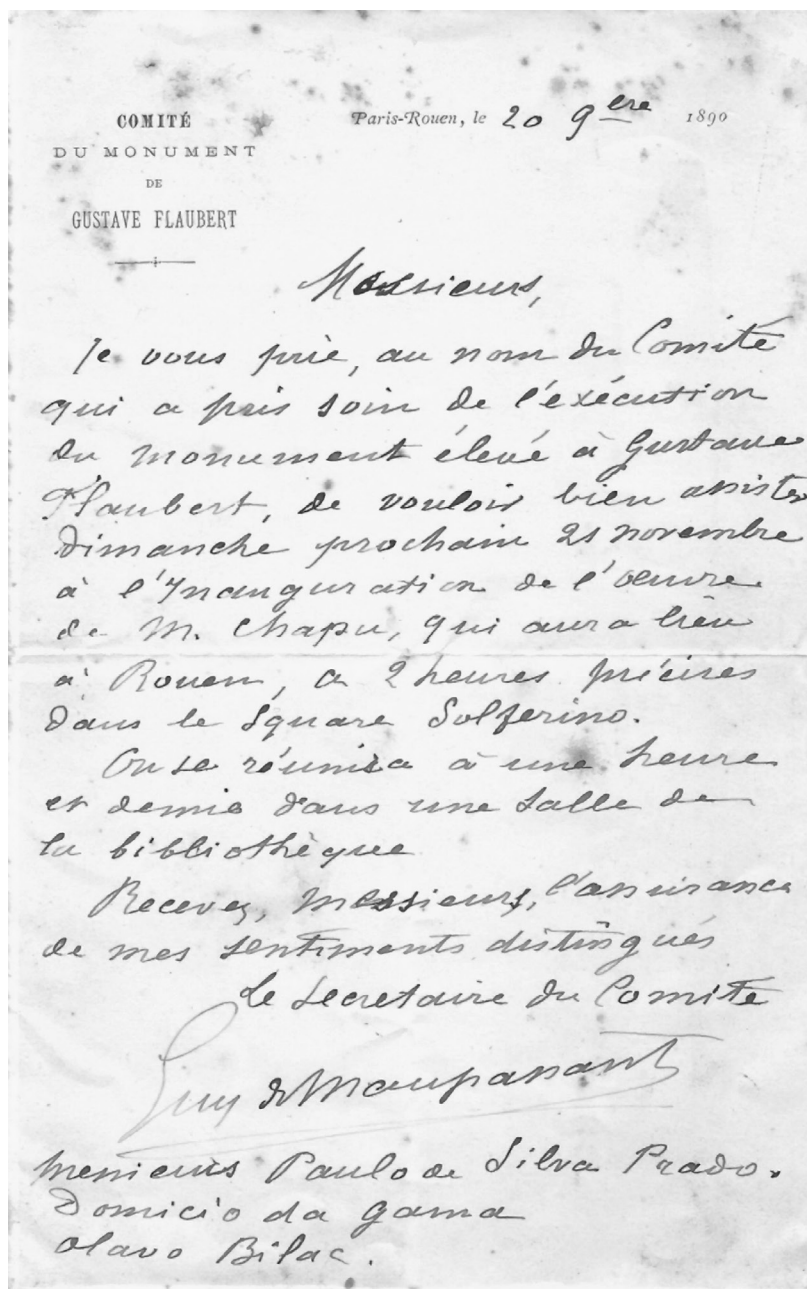 COMITÉ
DU MONUMENT
DE
GUSTAVE FLAUBERT
Paris-Rouen, le 20 9ere 1890
Messieurs,
Je vous prie, au nom du Comité
qui a pris soin de l'exécution
du monument élevé à Gustave
Flaubert, de vouloir bien assister
dimanche prochain 21 novembre
à l'Inauguration de l'œuvre
de M. Chapu, qui aura lieu
à Rouen, a 2 heures précises
dans le Square Solferino.
On se réunira à une heure
et demie dans une salle de
la bibliothèque
Recevez, messieurs, l'assurance
de mes sentiments distingués
Le Secretaire du Comité
Guy de Maupassant
Messieurs Paulo de Silva Prado.
Domicio da Gama
Olavo Bilac.